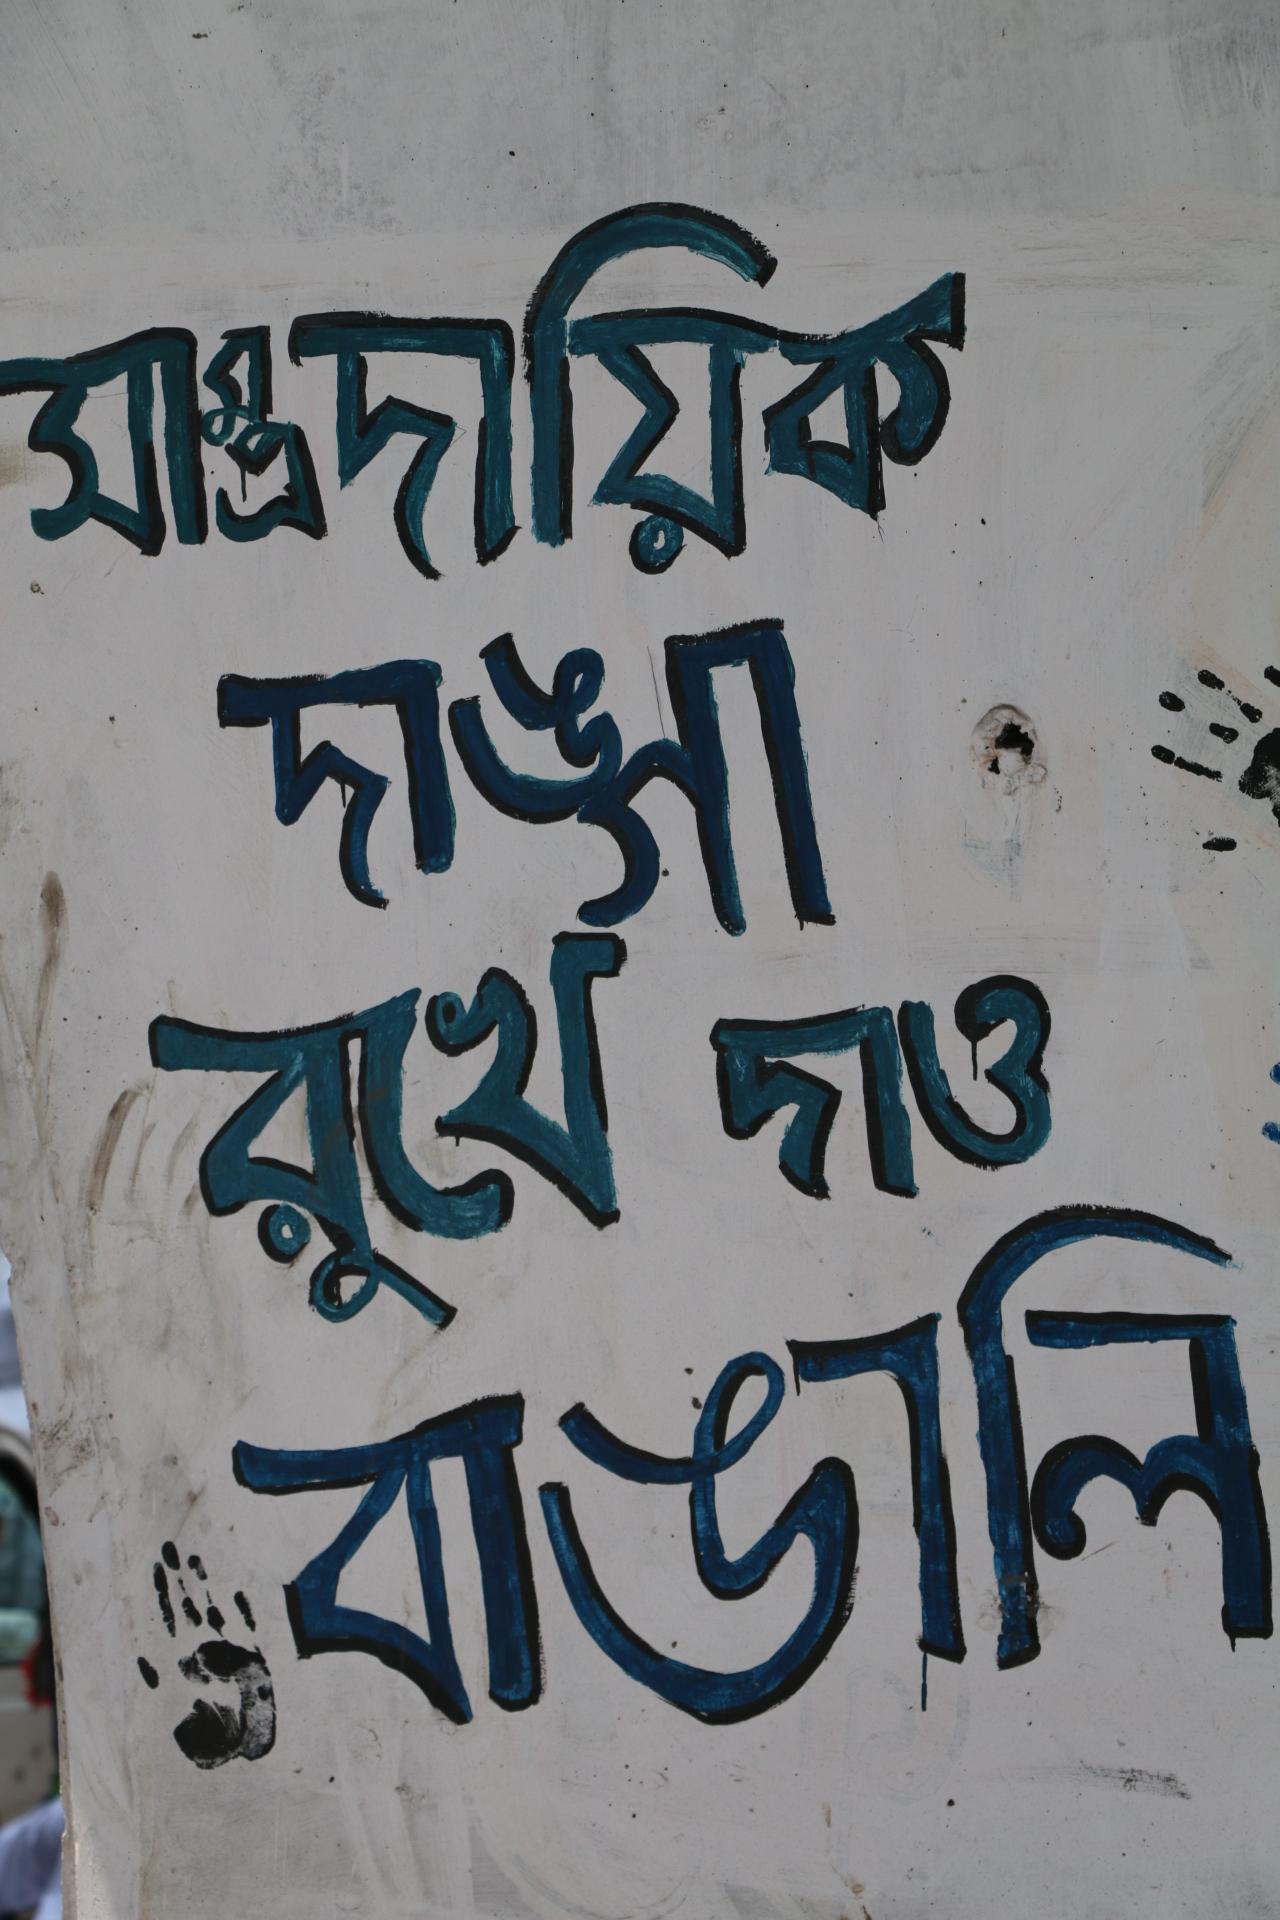 সাম্প্রদায়িক
দাঙ্গা
রুখে দাও
বাঙালি